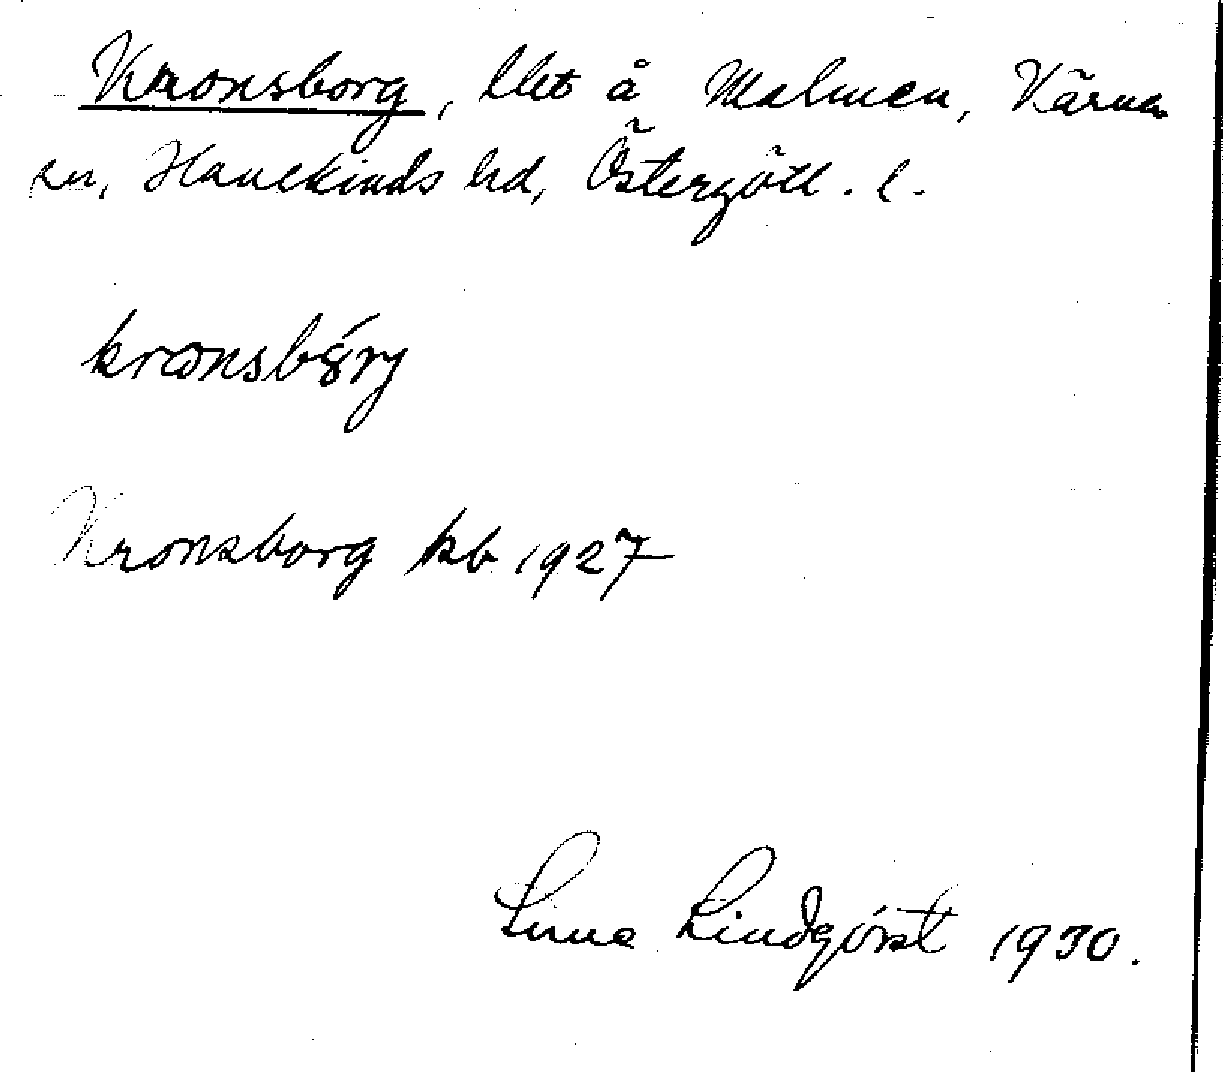 Kronsborg, lht å Malmen, Kärna
sn, Hanekinds hd, Östergötl. l.
kronsbórj
Kronsborg kb 1927
Lindqvist 1930.